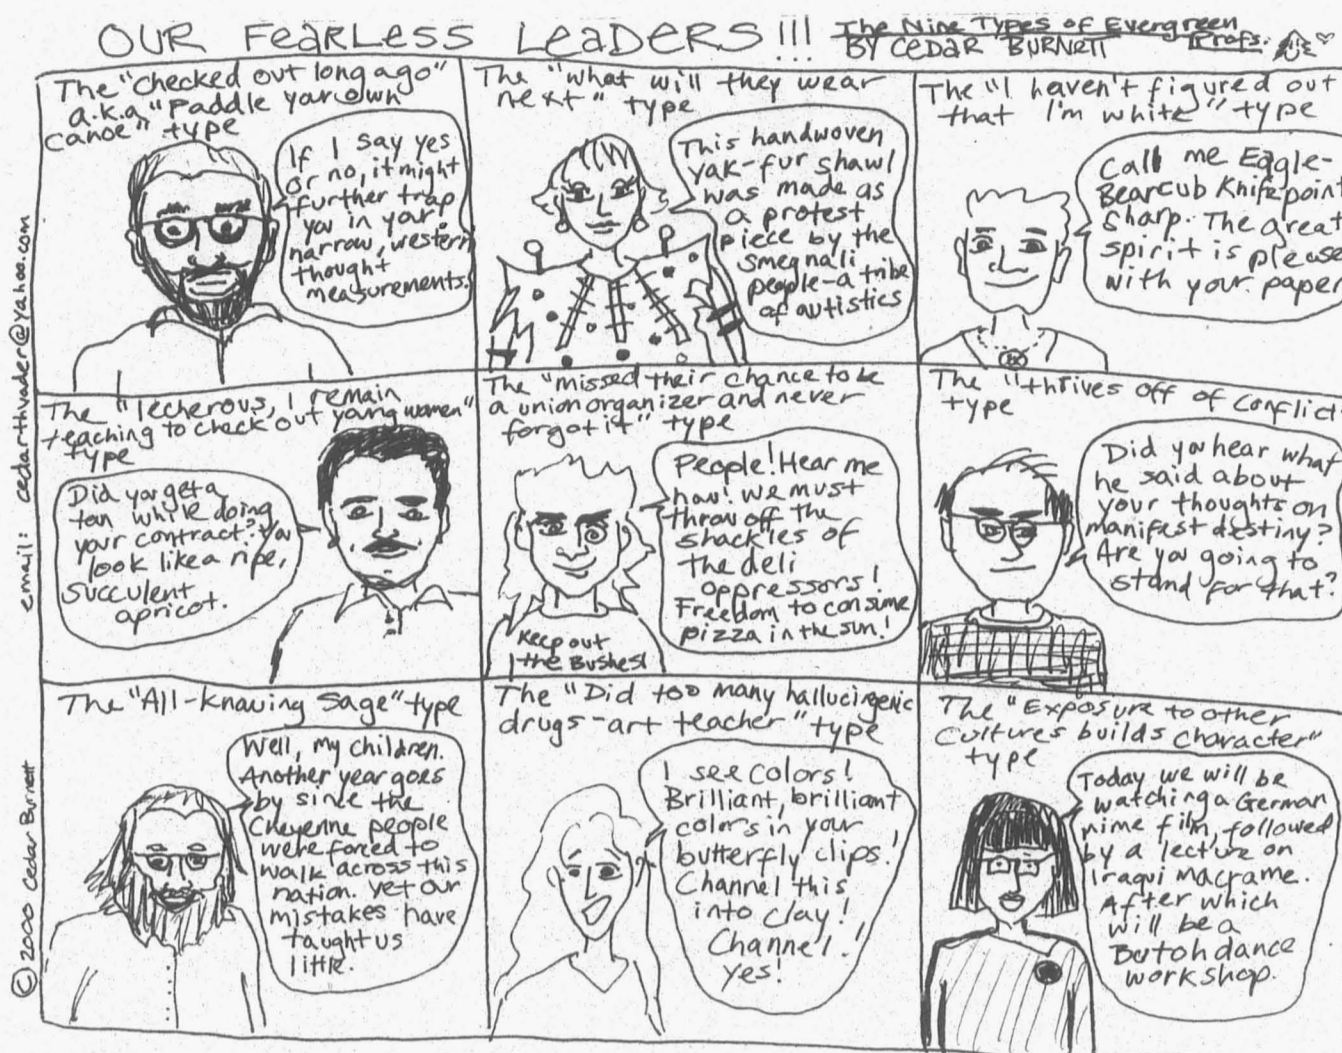 OUR FEARLESS LEADERS!!!
The Nine Types of Evergreen
Profs.
BY CEDAR BURNETT
The "checked out long ago"
a.k.a. "Paddle yar own
canoe" type
If I say yes
or no, it might
further trap
you in your
narrow, western
thought
measurements.
The "what will they wear
next" type
This handwoven
yak-fur shawl
was made as
a protest
piece by the
smegnali
people-a tribe
of autistics
The "I haven't figured out
that I'm white" type
Call me Eagle-
Bearcub Knifepoint
sharp. The great
spirit is please
with your paper
The "lecherous, I remain
teaching to check out young women"
type
Did you get a
tan while doing
your contract? You
look like a ripe,
succulent
apricot.
The "missed their chance to be
a union organizer and never
forgot it" type
People! Hear me
now! We must
throw off the
shackles of
the deli
oppressors!
Freedom to consume
pizza in the sun!
Keep out
the Bushes!
The "thrives off of conflict"
type
Did you hear what
he said about
your thoughts on
manifest destiny?
Are you going to
stand for that?
The "All-knowing Sage" type
Well, my children.
Another year goes
by since the
Cheyenne people
were forced to
walk across this
nation. yet our
mistakes have
taught us
little.
The "Did too many hallucinogenic
drugs-art teacher" type
I see colors!
Brilliant, brilliant
colors in your
butterfly clips!
Channel this
into clay!
Channel!
Yes!
The "Exposure to other
Cultures builds character"
type
Today we will be
watching a German
mime film, followed
by a lecture on
Iraqui macrame.
After which
will be a
Butoh dance
workshop.
email: cedarthvader@yahoo.com
© 2000 Cedar Burnett